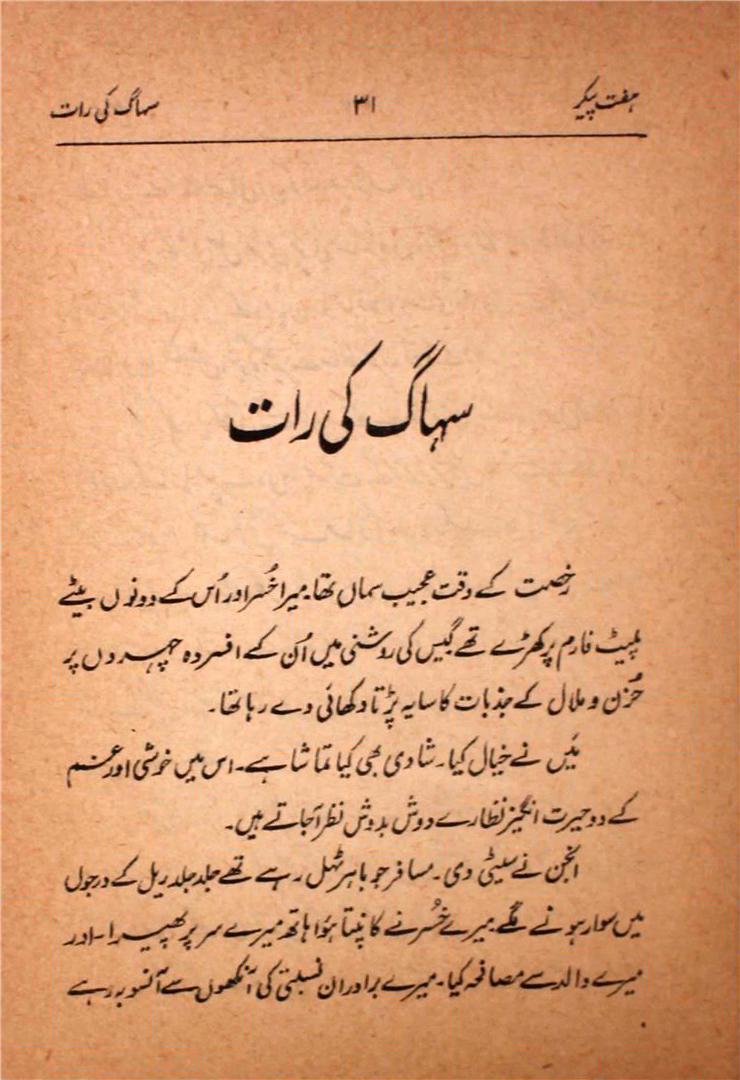 ہفت پیکر ۳۱ سہاگ کی رات
سہاگ کی رات
رخصت کے وقت عجیب سماں تھا۔ میرا خُسر اور اُس کے دونوں بیٹے
پلیٹ فارم پر کھڑے تھے گیس کی روشنی میں اُن کے افسردہ چہروں پر
حُزن و ملال کے جذبات کا سایہ پڑتا دکھائی دے رہا تھا۔
مَیں نے خیال کیا۔ شادی بھی کیا تماشا ہے۔ اس میں خوشی اور غم
کے دو حیرت انگیز نظارے دوش بدوش نظر آجاتے ہیں۔
انجن نے سیٹی دی۔ مسافر جو باہر ٹہل رہے تھے جلد جلد ریل کے درجوں
میں سوار ہونے لگے۔ میرے خُسر نے کانپتا ہؤا ہاتھ میرے سر پر پھیرا۔ اور
میرے والد سے مصافحہ کیا۔ میرے برادران نسبتی کی آنکھوں سے آنسو بہ رہے